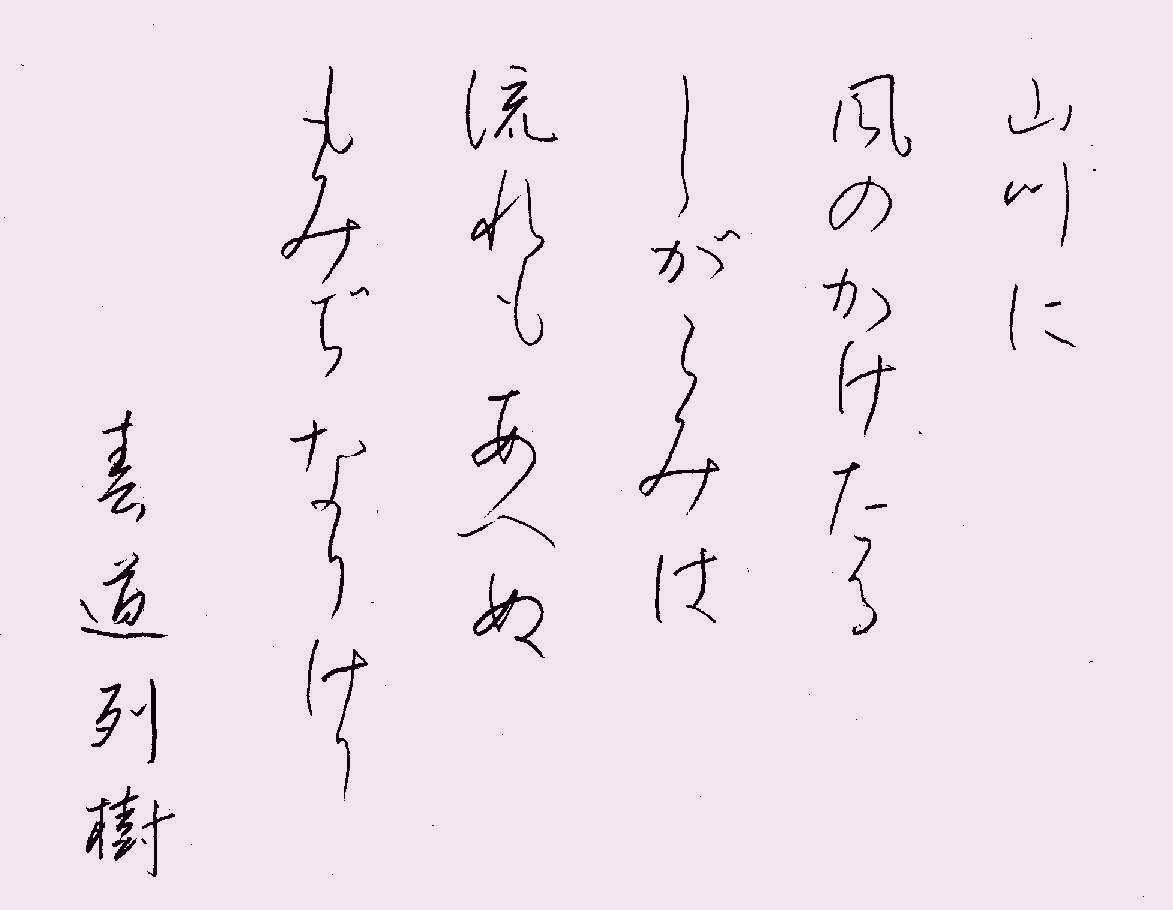 山川に
風のかけたる
しがらみは
流れもあへぬ
もみぢなりけり
春道列樹